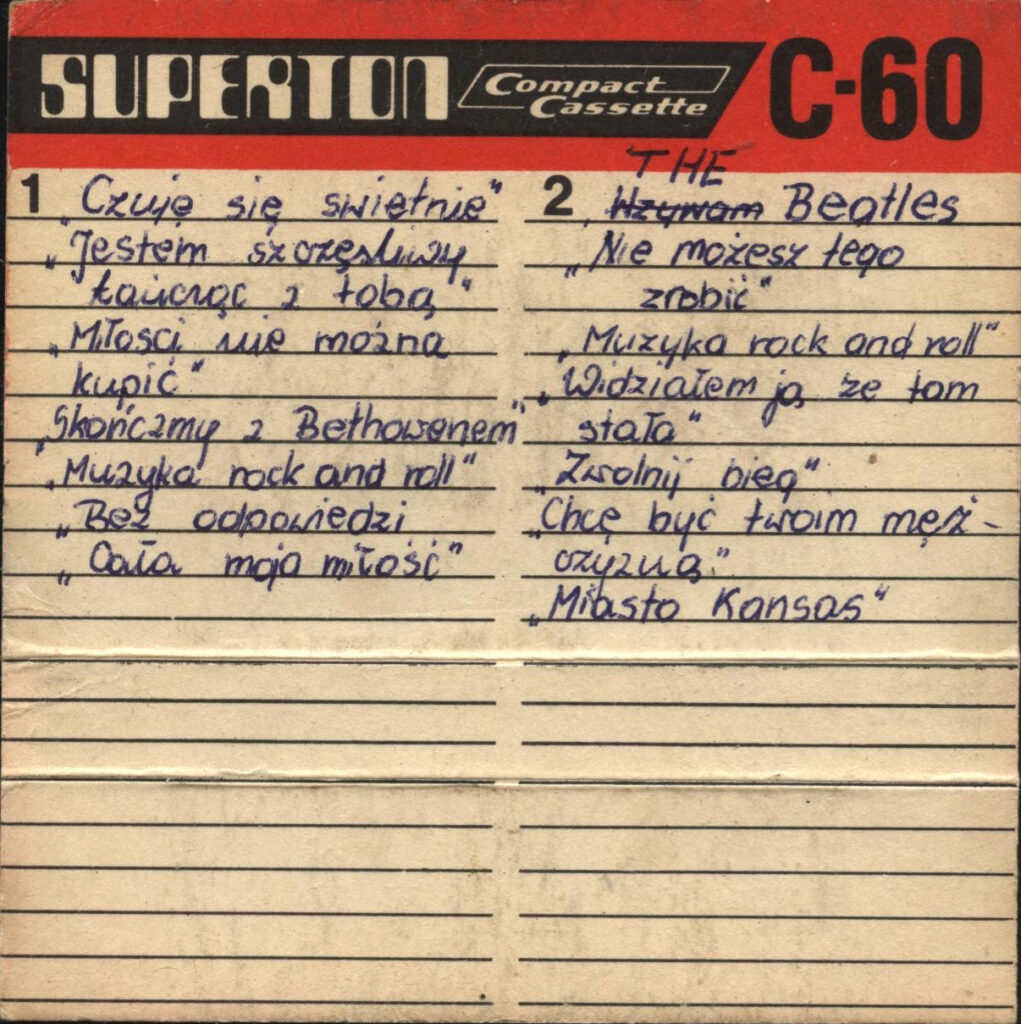 SUPERTON Compact Cassette C-60
1 „Czuję się świetnie"
„Jestem szczęśliwy
tańcząc z tobą"
„Miłości nie można
kupić"
„Skończmy z Bethowenem"
„Muzyka rock and roll"
„Bez odpowiedzi
„Cała moja miłość"
THE
2 „Wzywam Beatles
„Nie możesz tego
zrobić"
„Muzyka rock and roll"
„Widziałem ją, że tam
stała"
„Zwolnij bieg"
„Chcę być twoim męż-
czyzną"
„Miasto Kansas"